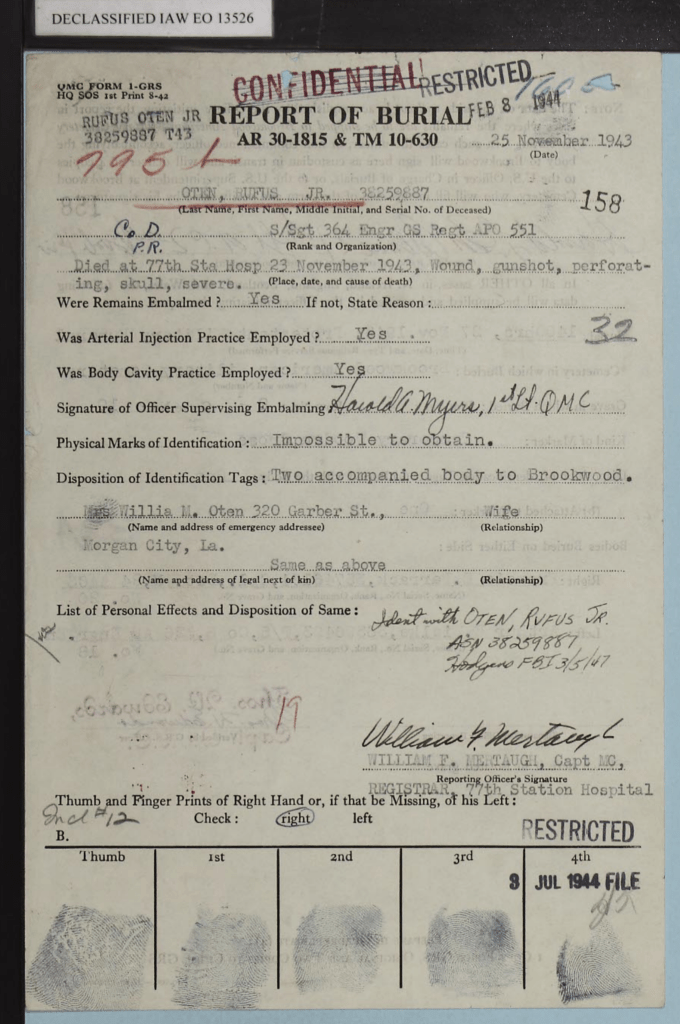 DECLASSIFIED IAW EO 13526
QMC FORM 1-GRS
HQ SOS 1st Print 8-42
CONFIDENTIAL
RESTRICTED
FEB 8 1944
RUFUS OTEN JR
38259887 T43
REPORT OF BURIAL
AR 30-1815 & TM 10-630
25 November 1943
(Date)
795 L
OTEN, RUFUS JR. 38259887
158
(Last Name, First Name, Middle Initial, and Serial No. of Deceased)
Co D. S/Sgt 364 Engr GS Regt APO 551
P.R. (Rank and Organization)
Died at 77th Sta Hosp 23 November 1943, Wound, gunshot, perforat-
ing, skull, severe. (Place, date, and cause of death)
Were Remains Embalmed ? Yes If not, State Reason :
32
Was Arterial Injection Practice Employed ? Yes .
Was Body Cavity Practice Employed ? Yes
Signature of Officer Supervising Embalming Harold A. Myers, 1st Lt. QMC
Physical Marks of Identification : Impossible to obtain.
Disposition of Identification Tags : Two accompanied body to Brookwood.
Mrs Willia M. Oten 320 Garber St., Wife
(Name and address of emergency addressee) (Relationship)
Morgan City, La.
Same as above
(Name and address of legal next of kin) (Relationship)
List of Personal Effects and Disposition of Same :
Ident with OTEN, RUFUS JR.
ASN 38259887
Hodgens FBI 3/5/47
William F. Mertaugh
WILLIAM F. MERTAUGH, Capt MC,
Reporting Officer's Signature
REGISTRAR, 77th Station Hospital
Thumb and Finger Prints of Right Hand or, if that be Missing, of his Left :
Incl #12 Check : right left
B.
RESTRICTED
Thumb 1st 2nd 3rd 4th
3 JUL 1944 FILE